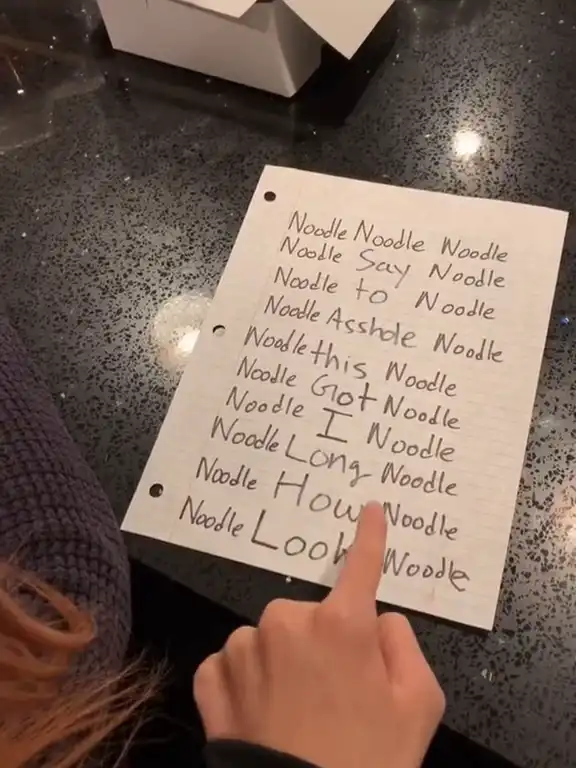 Noodle Noodle Noodle
Noodle Say Noodle
Noodle to Noodle
Noodle Asshole Noodle
Noodle this Noodle
Noodle Got Noodle
Noodle I Noodle
Noodle Long Noodle
Noodle How Noodle
Noodle Look Noodle